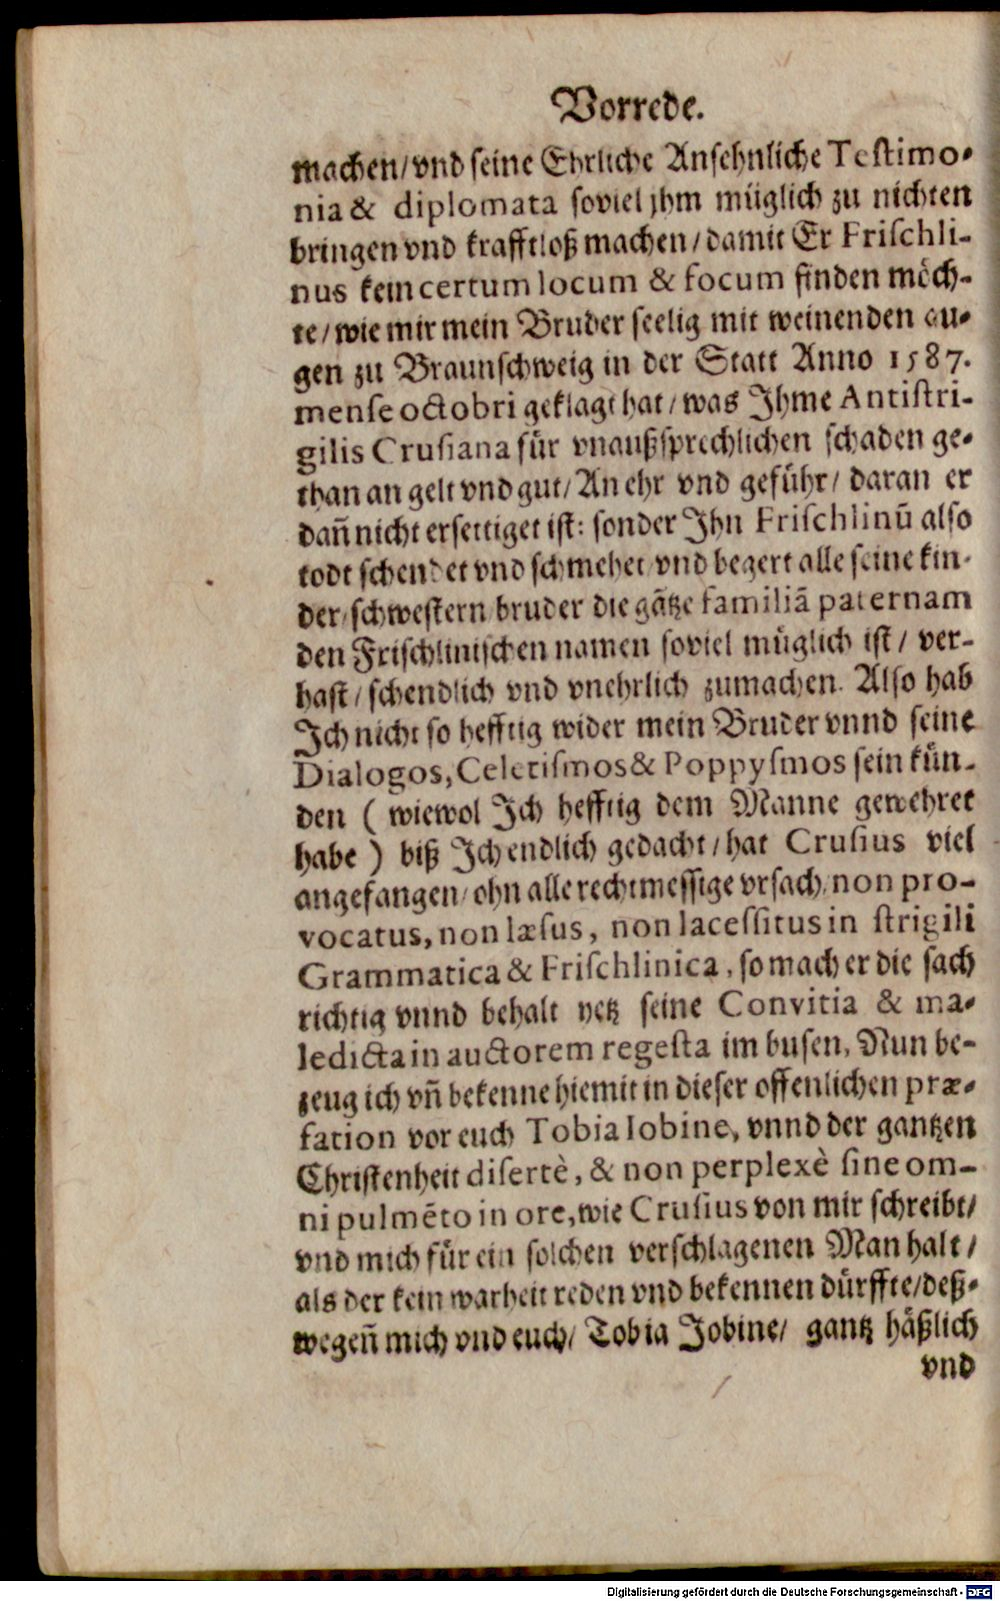 Vorrede.
machen/vnd seine Ehrliche Ansehnliche Testimo-
nia & diplomata soviel jhm müglich zu nichten
bringen vnd krafftloß machen/damit Er Frischli-
nus kein certum locum & focum finden möch-
te/wie mir mein Bruder seelig mit weinenden au-
gen zu Braunschweig in der Statt Anno 1587.
mense octobri geklagt hat/was Ihme Antistri-
gilis Crusiana für vnaußsprechlichen schaden ge-
than an gelt vnd gut/An ehr vnd geführ/daran er
dañ nicht ersettiget ist: sonder Ihn Frischlinū also
todt schendet vnd schmehet vnd begert alle seine kin-
der/schwestern bruder die gātze familiā paternam
den Frischlinischen namen soviel müglich ist/ver-
hast/schendlich vnd vnehrlich zumachen. Also hab
Ich nicht so hefftig wider mein Bruder vnnd seine
Dialogos, Celetismos & Poppysmos sein kün-
den (wiewol Ich hefftig dem Manne gewehret
habe) biß Ich endlich gedacht/hat Crusius viel
angefangen/ohn alle rechtmessige vrsach, non pro-
vocatus, non læsus, non lacessitus in strigili
Grammatica & Frischlinica, so mach er die sach
richtig vnnd behalt yetz seine Convitia & ma-
ledicta in auctorem regesta im busen, Nun be-
zeug ich vñ bekenne hiemit in dieser offenlichen præ-
fation vor euch Tobia Iobine, vnnd der gantzen
Christenheit disertè, & non perplexè sine om-
ni pulmēto in ore, wie Crusius von mir schreibt/
vnd mich für ein solchen verschlagenen Man halt/
als der kein warheit reden vnd bekennen dürffte/deß-
wegeñ mich vnd euch/ Tobia Jobine/ gantz häßlich
vnd
Digitalisierung gefördert durch die Deutsche Forschungsgemeinschaft - DFG